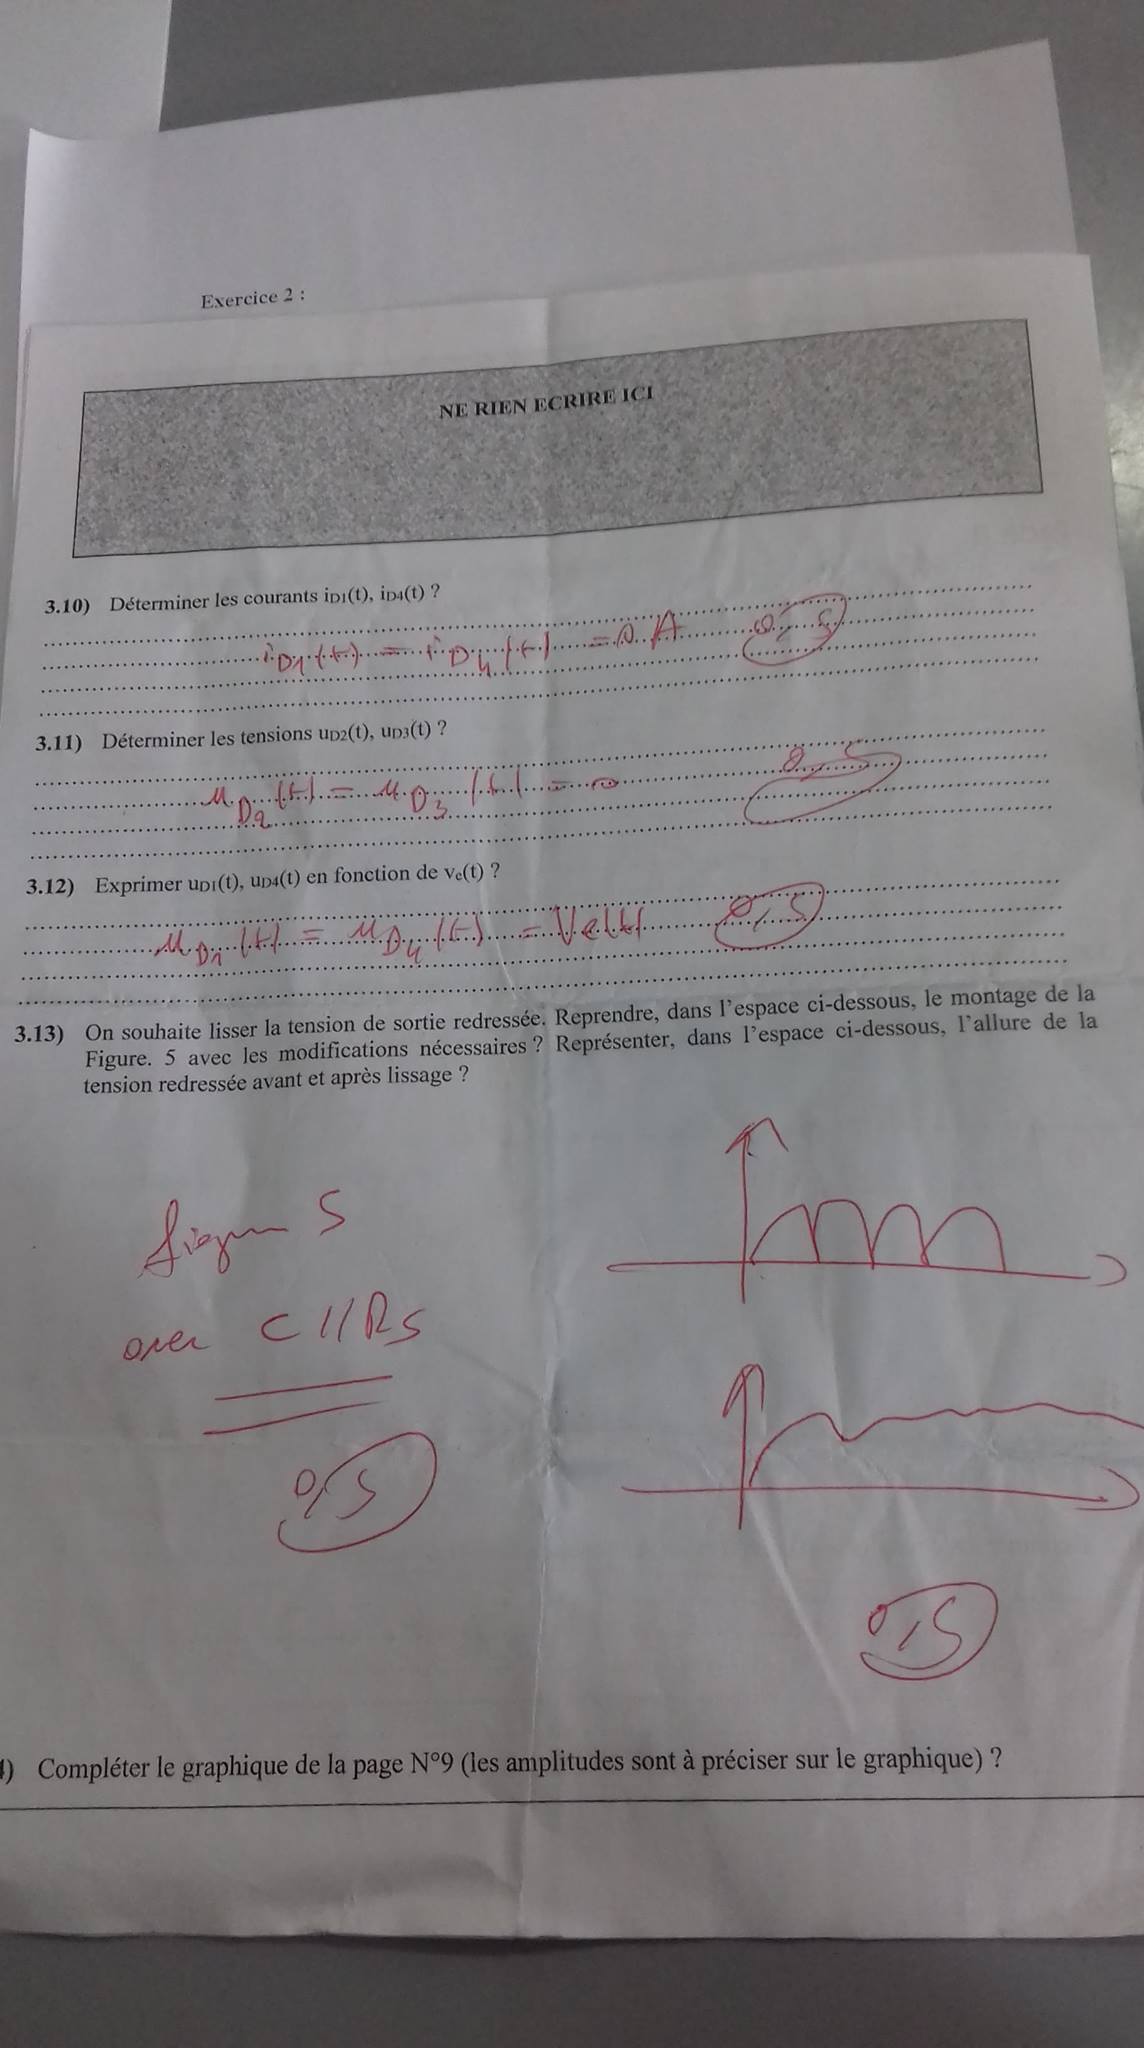 Exercice 2 :
NE RIEN ECRIRE ICI
3.10) Déterminer les courants iD1(t), iD4(t) ?
iD1(t) = iD4(t) = 0 A 0,5
3.11) Déterminer les tensions uD2(t), uD3(t) ?
uD2(t) = uD3(t) = 0 0,5
3.12) Exprimer uD1(t), uD4(t) en fonction de ve(t) ?
uD1(t) = uD4(t) = Ve(t) 0,5
3.13) On souhaite lisser la tension de sortie redressée. Reprendre, dans l'espace ci-dessous, le montage de la
Figure. 5 avec les modifications nécessaires ? Représenter, dans l'espace ci-dessous, l'allure de la
tension redressée avant et après lissage ?
figure 5
avec C // Rs
0,5
0,5
4) Compléter le graphique de la page N°9 (les amplitudes sont à préciser sur le graphique) ?